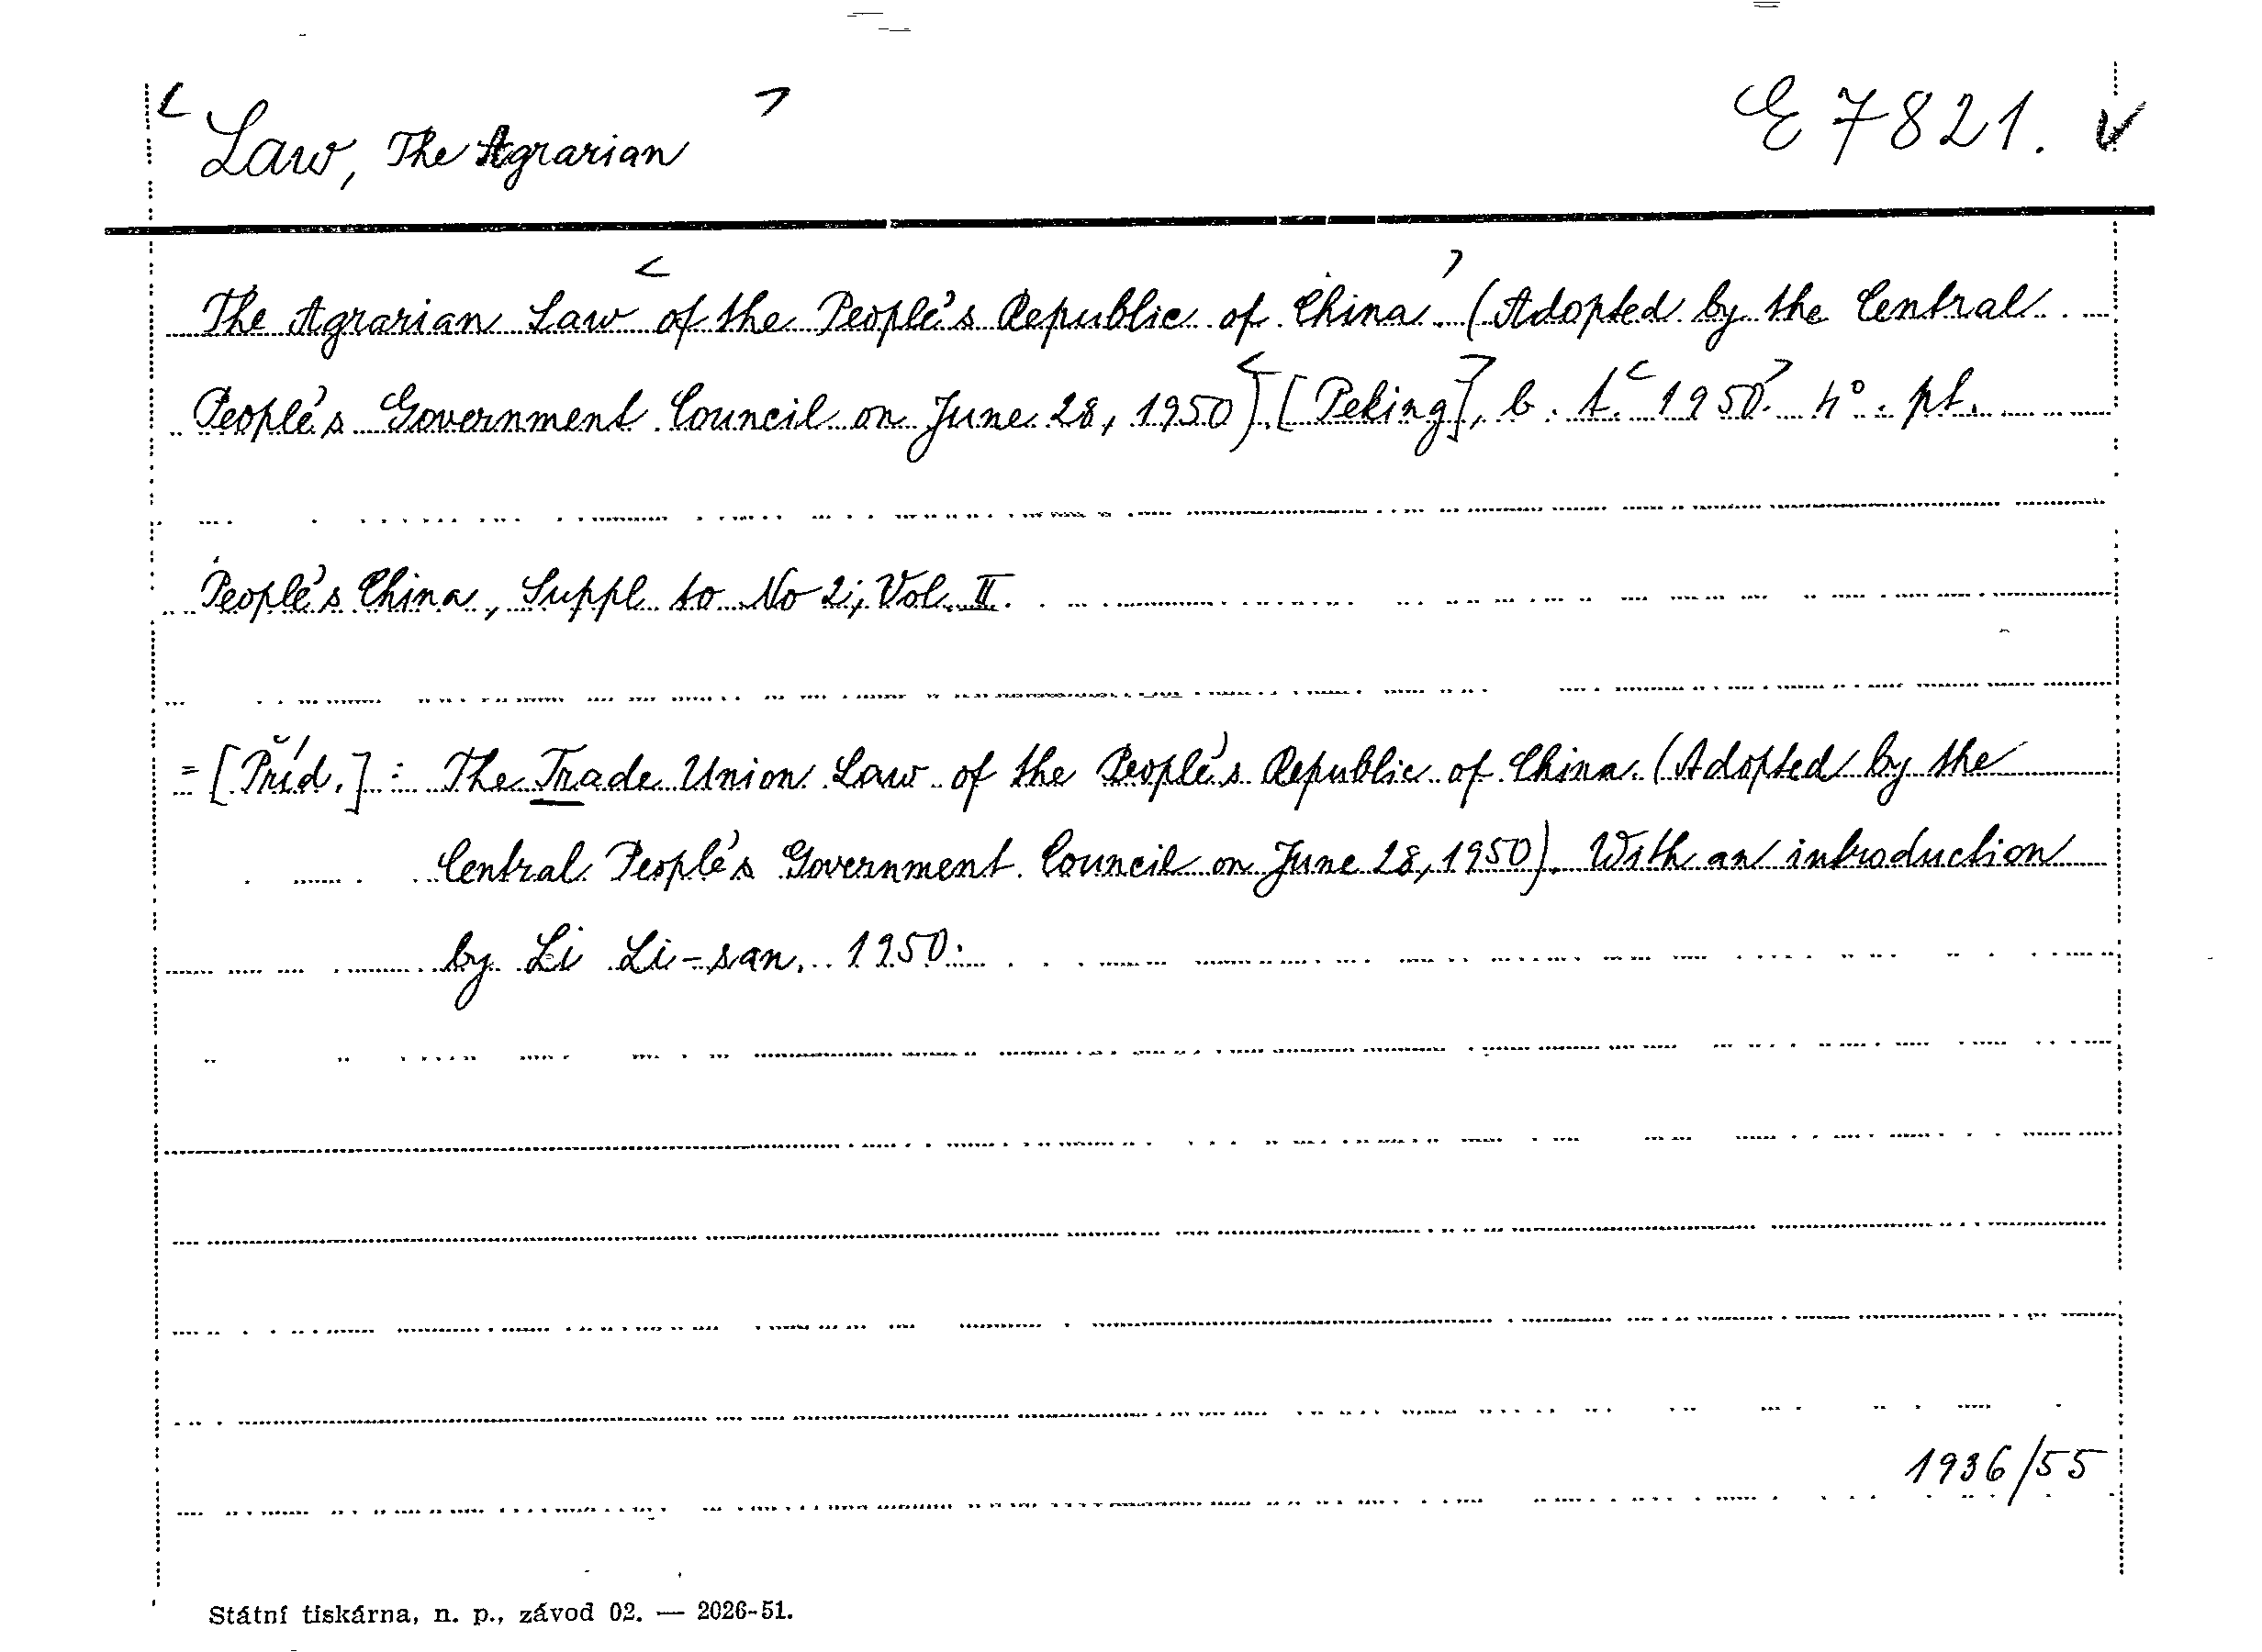 Law, The Agrarian
E 7821.
The Agrarian Law of the People's Republic of China. (Adopted by the Central
People's Government Council on June 28, 1950). [Peking], b. t. 1950. 4°. pt.
People's China, Suppl. to No 2, Vol. II.
= [Příd.] : The Trade Union Law of the People's Republic of China. (Adopted by the
Central People's Government Council on June 28, 1950). With an introduction
by Li Li-san. 1950.
1936/55
Státní tiskárna, n. p., závod 02. — 2026-51.